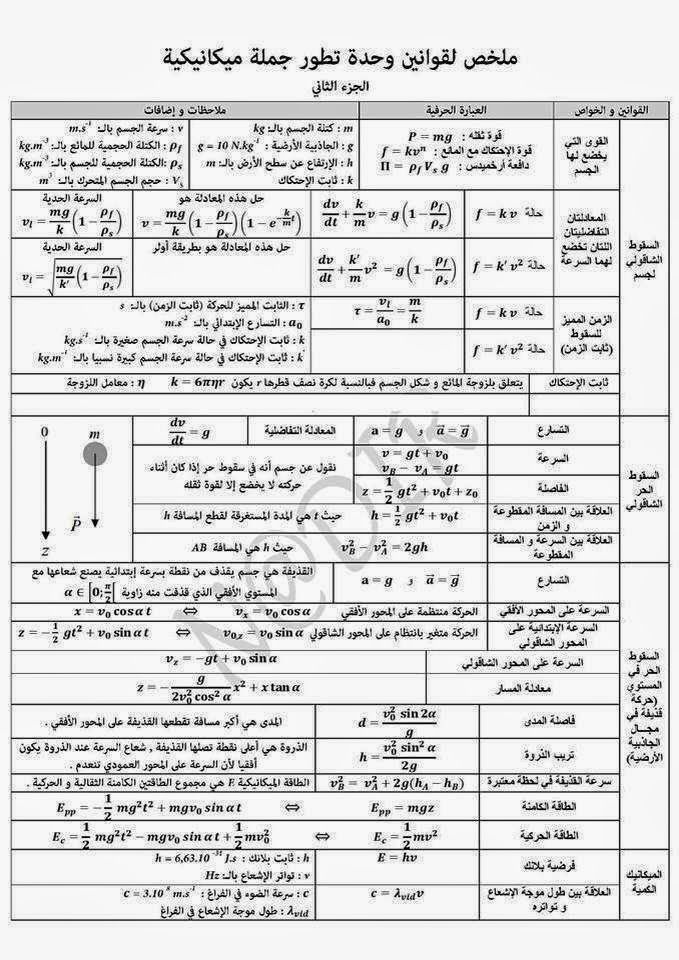 ملخص لقوانين وحدة تطور جملة ميكانيكية
الجزء الثاني
القوانين و الخواص
العبارة الحرفية
ملاحظات و إضافات
السقوط الشاقولي لجسم
القوى التي يخضع لها الجسم
قوة ثقله : P = mg
قوة الإحتكاك مع المائع : f = kvⁿ
دافعة أرخميدس : Π = ρ_f V_s g
m : كتلة الجسم بالـ: kg
g : الجاذبية الأرضية : g = 10 N.kg⁻¹
h : الإرتفاع عن سطح الأرض بالـ: m
k : ثابت الإحتكاك
v : سرعة الجسم بالـ: m.s⁻¹
ρ_f : الكتلة الحجمية للمائع بالـ: kg.m⁻³
ρ_s : الكتلة الحجمية للجسم بالـ: kg.m⁻³
V_s : حجم الجسم المتحرك بالـ: m³
المعادلتان التفاضليتان اللتان تخضع لهما السرعة
حالة f = k v
dv/dt + k/m v = g(1 − ρ_f/ρ_s)
حل هذه المعادلة هو
v = mg/k (1 − ρ_f/ρ_s)(1 − e^(−k/m t))
السرعة الحدية
v_l = mg/k (1 − ρ_f/ρ_s)
حالة f = k′ v²
dv/dt + k′/m v² = g(1 − ρ_f/ρ_s)
حل هذه المعادلة هو بطريقة أولر
السرعة الحدية
v_l = √(mg/k′ (1 − ρ_f/ρ_s))
الزمن المميز للسقوط (ثابت الزمن)
حالة f = k v
τ = v_l/a₀ = m/k
حالة f = k′ v²
τ : الثابت المميز للحركة (ثابت الزمن) بالـ: s
a₀ : التسارع الإبتدائي بالـ: m.s⁻²
k : ثابت الإحتكاك في حالة سرعة الجسم صغيرة بالـ: kg.s⁻¹
k′ : ثابت الإحتكاك في حالة سرعة الجسم كبيرة نسبيا بالـ: kg.m⁻¹
ثابت الإحتكاك
يتعلق بلزوجة المائع و شكل الجسم فبالنسبة لكرة نصف قطرها r يكون k = 6πηr η : معامل اللزوجة
السقوط الحر الشاقولي
التسارع
a = g و a⃗ = g⃗
المعادلة التفاضلية
dv/dt = g
0
m
P⃗
z
السرعة
v = gt + v₀
v_B − v_A = gt
نقول عن جسم أنه في سقوط حر إذا كان أثناء حركته لا يخضع إلا لقوة ثقله
الفاصلة
z = 1/2 gt² + v₀t + z₀
العلاقة بين المسافة المقطوعة و الزمن
h = 1/2 gt² + v₀t
حيث t هي المدة المستغرقة لقطع المسافة h
العلاقة بين السرعة و المسافة المقطوعة
v²_B − v²_A = 2gh
حيث h هي المسافة AB
السقوط الحر في المستوي (حركة قذيفة في مجال الجاذبية الأرضية)
التسارع
a = g و a⃗ = g⃗
القذيفة هي جسم يقذف من نقطة بسرعة إبتدائية يصنع شعاعها مع المستوي الأفقي الذي قذفت منه زاوية α ∈ [0; π/2[
السرعة على المحور الأفقي
الحركة منتظمة على المحور الأفقي
v_x = v₀ cos α ⇔ x = v₀ cos α t
السرعة الإبتدائية على المحور الشاقولي
الحركة متغير بانتظام على المحور الشاقولي
v₀z = v₀ sin α ⇔ z = −1/2 gt² + v₀ sin α t
السرعة على المحور الشاقولي
v_z = −gt + v₀ sin α
معادلة المسار
z = − g/(2v₀² cos² α) x² + x tan α
فاصلة المدى
d = v₀² sin 2α / g
المدى هي أكبر مسافة تقطعها القذيفة على المحور الأفقي .
تريب الذروة
h = v₀² sin² α / 2g
الذروة هي أعلى نقطة تصلها القذيفة , شعاع السرعة عند الذروة يكون أفقيا لأن السرعة على المحور العمودي تنعدم .
سرعة القذيفة في لحظة معتبرة
v²_B = v²_A + 2g(h_A − h_B)
الطاقة الميكانيكية E هي مجموع الطاقتين الكامنة الثقالية و الحركية .
الطاقة الكامنة
E_pp = mgz ⇔ E_pp = −1/2 mg²t² + mgv₀ sin α t
الطاقة الحركية
E_c = 1/2 mv² ⇔ E_c = 1/2 mg²t² − mgv₀ sin α t + 1/2 mv₀²
الميكانيك الكمية
فرضية بلانك
E = hν
h : ثابت بلانك : h = 6,63.10⁻³⁴ J.s
ν : تواتر الإشعاع بالـ: Hz
العلاقة بين طول موجة الإشعاع و تواتره
c = λ_vid ν
c : سرعة الضوء في الفراغ : c = 3.10⁸ m.s⁻¹
λ_vid : طول موجة الإشعاع في الفراغ